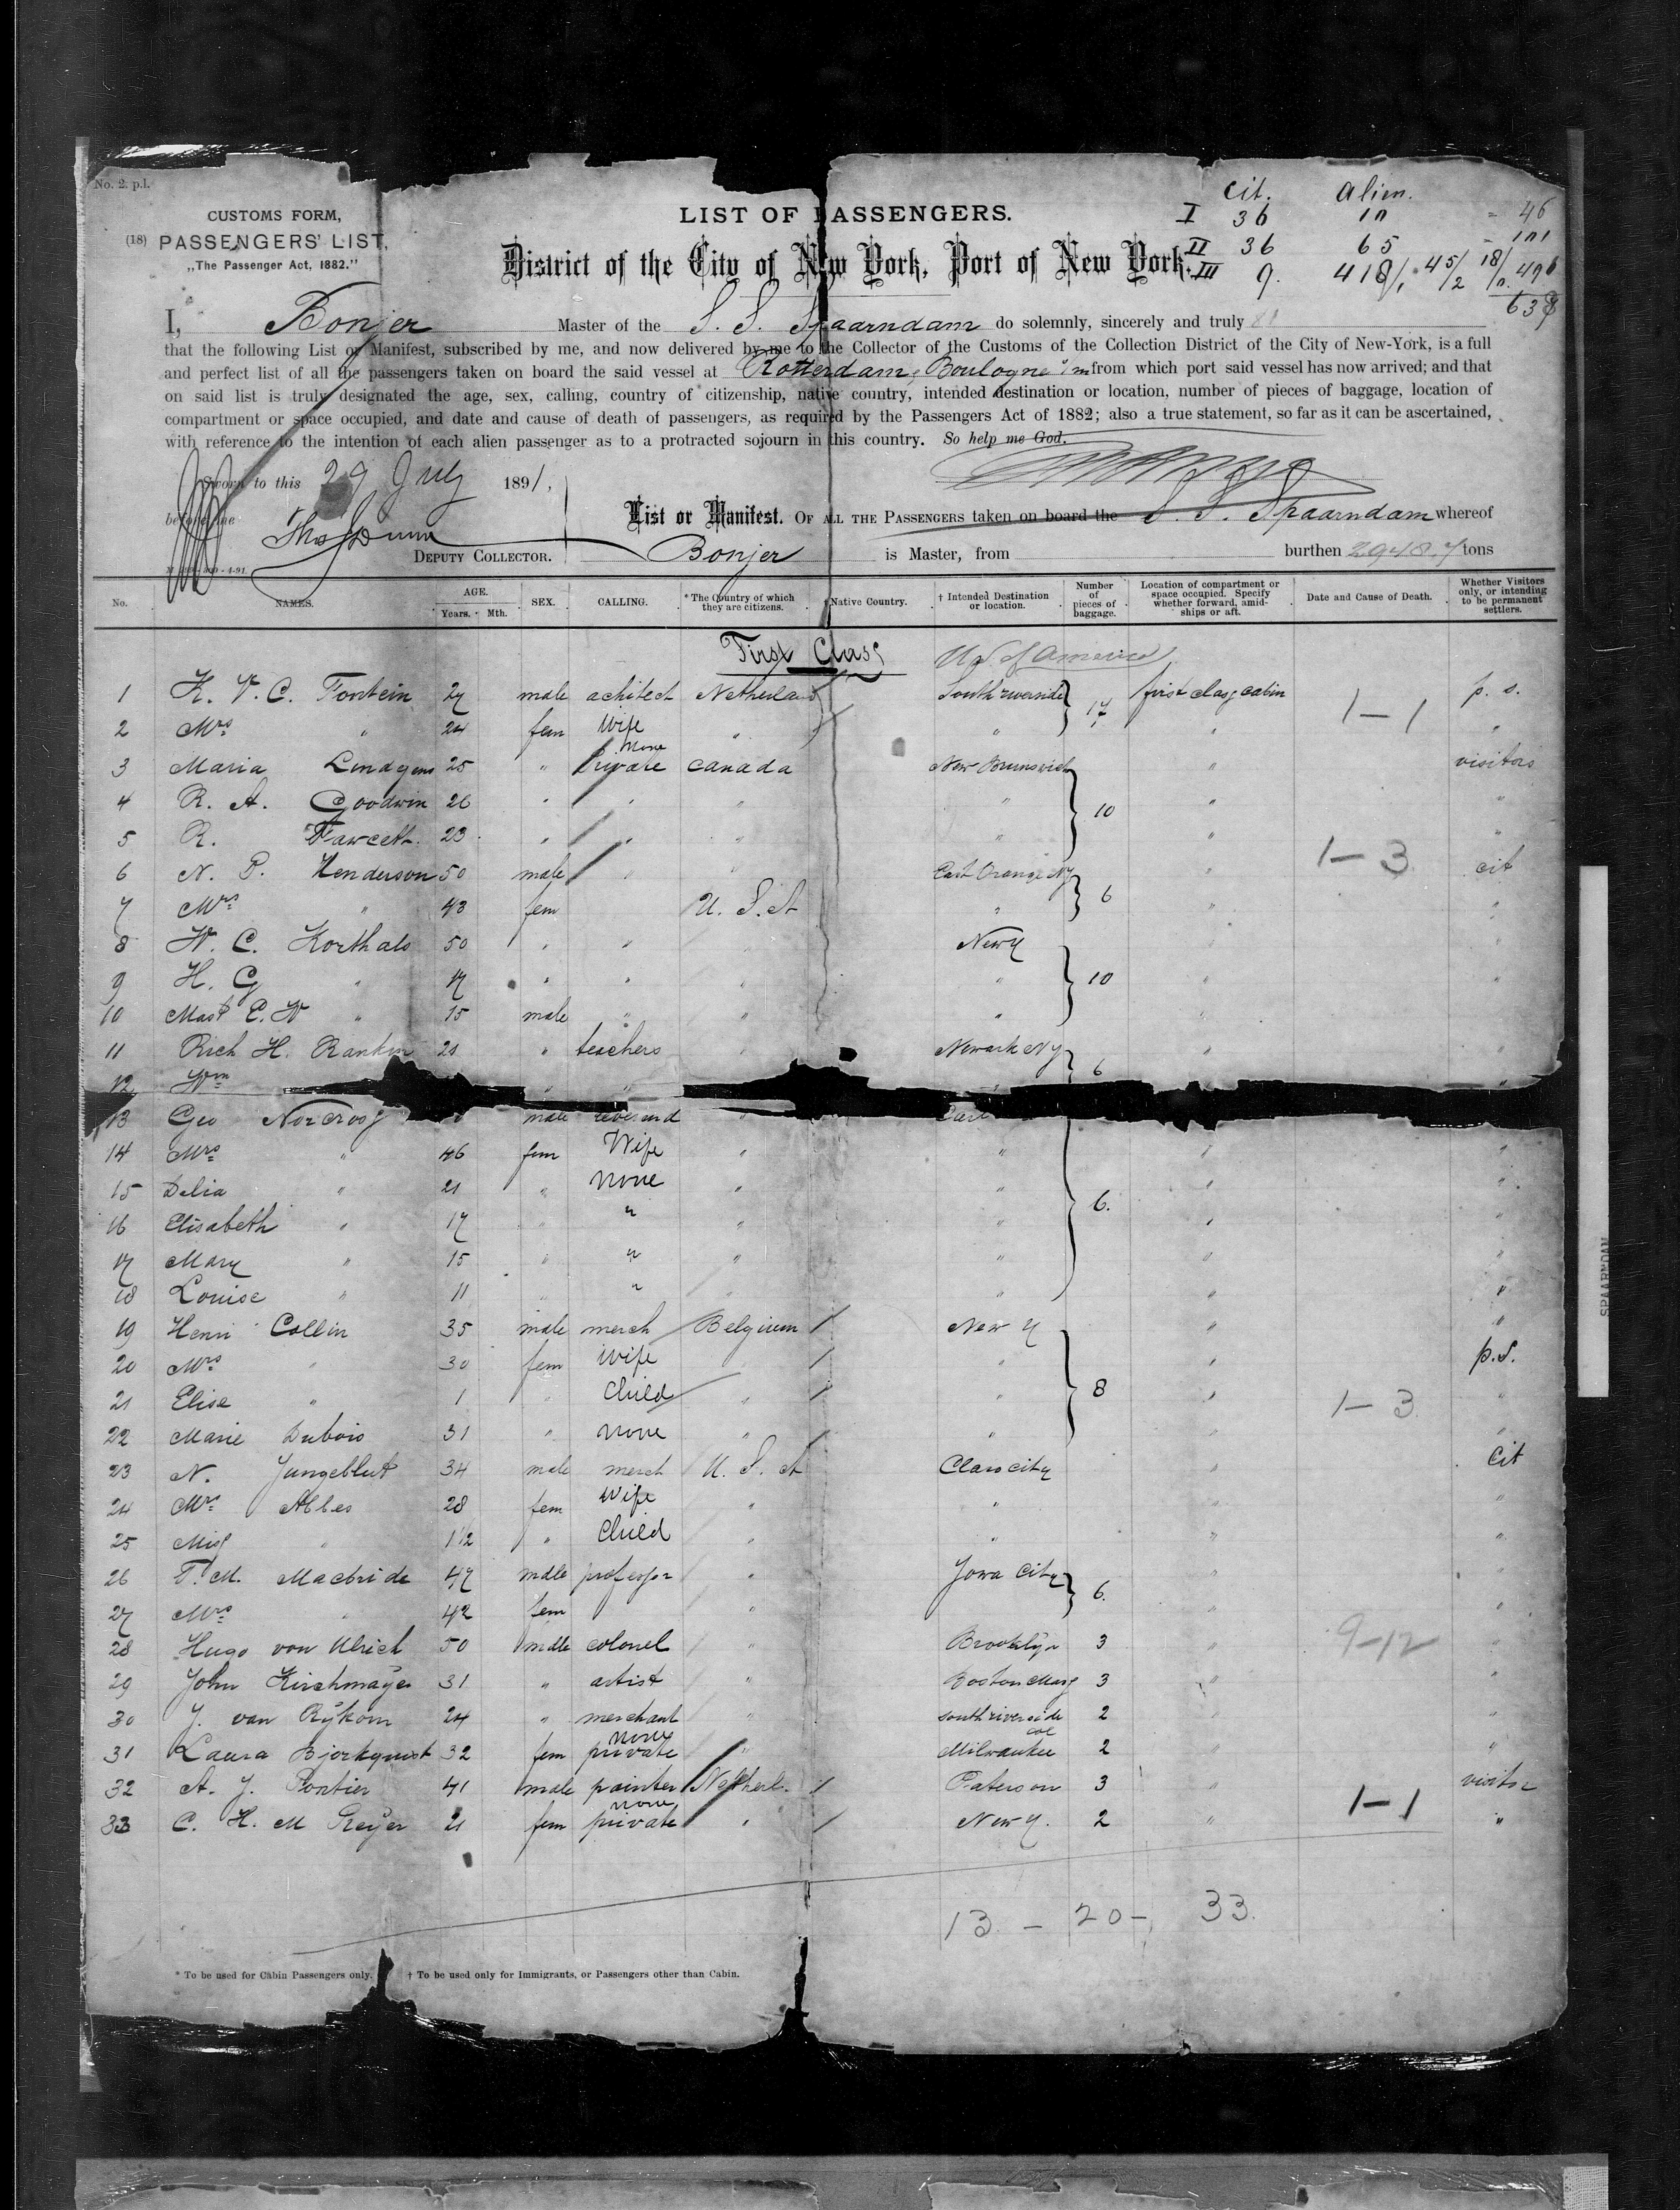 No. 2. p.l.
CUSTOMS FORM,
(18) PASSENGERS' LIST,
„The Passenger Act, 1882."
LIST OF PASSENGERS.
District of the City of New York, Port of New York.
Cit. Alien.
I 36 10 - 46
II 36 65 - 101
III 9. 418/1 45/2 18/ 49
63
I, Bonjer Master of the S. S. Spaarndam do solemnly, sincerely and truly
that the following List or Manifest, subscribed by me, and now delivered by me to the Collector of the Customs of the Collection District of the City of New-York, is a full
and perfect list of all the passengers taken on board the said vessel at Rotterdam, Boulogne s/m from which port said vessel has now arrived; and that
on said list is truly designated the age, sex, calling, country of citizenship, native country, intended destination or location, number of pieces of baggage, location of
compartment or space occupied, and date and cause of death of passengers, as required by the Passengers Act of 1882; also a true statement, so far as it can be ascertained,
with reference to the intention of each alien passenger as to a protracted sojourn in this country. So help me God.
Sworn to this 29 July 1891,
before me
Thos Dunn
DEPUTY COLLECTOR.
List or Manifest. OF ALL THE PASSENGERS taken on board the S. S. Spaarndam whereof
Bonjer is Master, from burthen 2948.7 tons
No. NAMES. AGE. Years. Mth. SEX. CALLING. * The Country of which they are citizens. † Native Country. † Intended Destination or location. Number of pieces of baggage. Location of compartment or space occupied. Specify whether forward, amid-ships or aft. Date and Cause of Death. Whether Visitors only, or intending to be permanent settlers.
First Class U S of America
1 K. V. C. Fontein 27 male achitect Netherland South riverside 17 first class cabin 1-1 p. s.
2 Mrs " 24 fem Wife " " " "
3 Maria Lindgens 25 " Private None Canada New Brunswick " visitors
4 R. A. Goodwin 26 " " " " 10 " "
5 R. Fawcett 23 " " " " " "
6 N. P. Henderson 50 male " " East Orange NY " 1-3 cit
7 Mrs " 43 fem U. S. A " 6 " "
8 W. C. Korthals 50 " " New Y " "
9 H. G " 17 " " " " 10 " "
10 Mast E. W " 15 male " " " " "
11 Rich H. Rankin 21 " teachers " Newark NY 6 " "
12 Wm " " " "
13 Geo Norcross male reverend " "
14 Mrs " 46 fem Wife " " " "
15 Delia " 21 " None " " " "
16 Elisabeth " 17 " " " " 6. " "
17 Mary " 15 " " " " " "
18 Louise " 11 " " " " " "
19 Henri Collin 35 male merch Belgium New Y " "
20 Mrs " 30 fem Wife " " " p. S.
21 Elise " 1 " Child " " 8 " 1-3 "
22 Marie Dubois 31 " none " " " "
23 N. Jungeblut 34 male merch U. S. A Clara city " cit
24 Mrs Abbes 28 fem Wife " " " "
25 Miss " 1 1/2 " Child " " " "
26 T. M. Macbride 47 male professor " Iowa City 6. " "
27 Mrs " 42 fem " " "
28 Hugo von Ulrich 50 male colonel " Brooklyn 3 " 9-12 "
29 John Kirchmayer 31 " artist " Boston Mass 3 " "
30 J. van Rÿkom 24 " merchant " south riverside cal 2 " "
31 Laura Bjorkquist 32 fem private none " Milwaukee 2 " "
32 A. J. Portier 41 male painter Netherl. Paterson 3 " visitor
33 C. H. M Greÿer 21 fem private none " New Y. 2 " 1-1 "
13 - 20 - 33.
* To be used for Cabin Passengers only. † To be used only for Immigrants, or Passengers other than Cabin.
SPAARNDAM